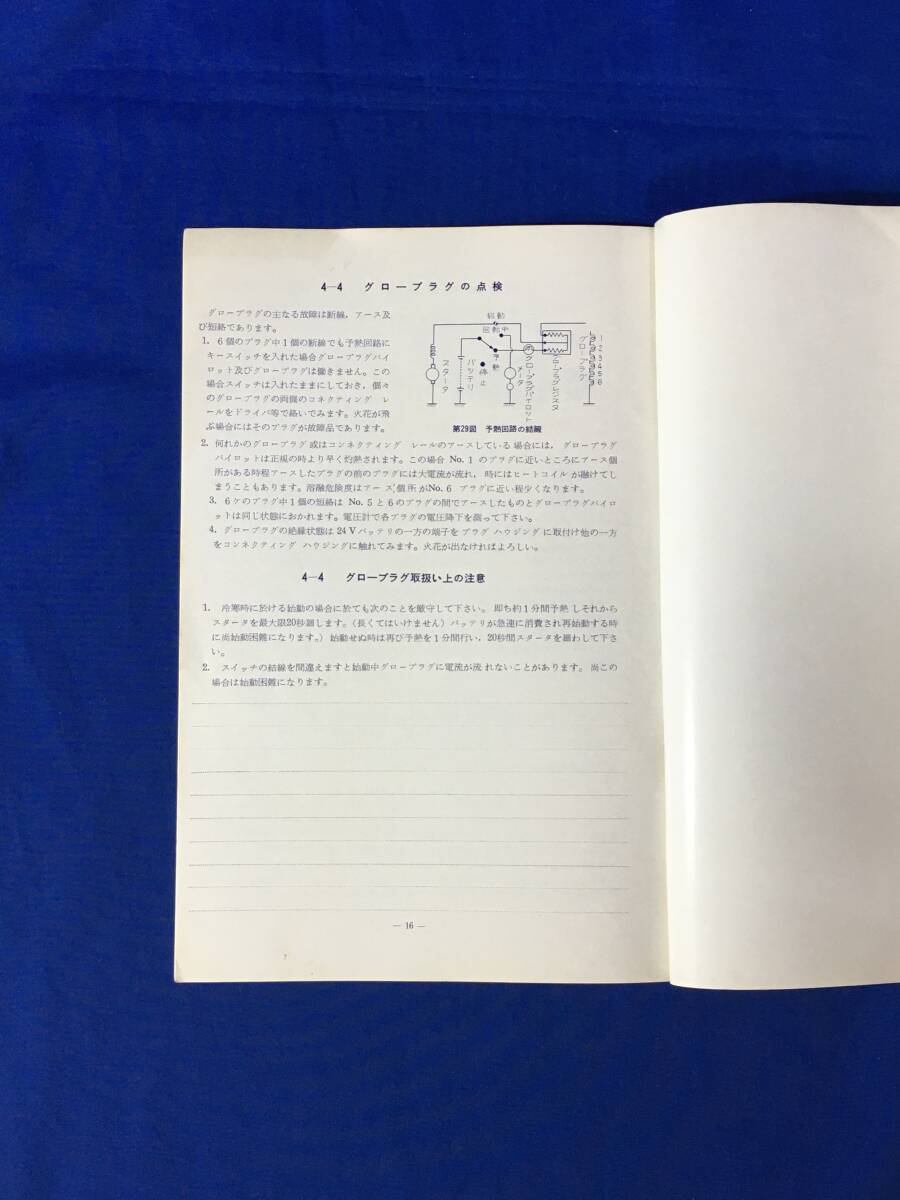 4—4 グロープラグの点検
グロープラグの主なる故障は断線，アース及
び短絡であります。
1. 6個のプラグ中1個の断線でも予熱回路に
キースイッチを入れた場合グロープラグパイ
ロット及びグロープラグは働きません。この
場合スイッチは入れたままにしておき，個々
のグロープラグの両側のコネクティング レ
ールをドライバ等で絡いでみます。火花が飛
ぶ場合にはそのプラグが故障品であります。
始動
回動中
予熱
停止
スタータ
バッテリ
メータ
グロープラグパイロット
グロープラグレジスタ
グロープラグ
1
2
3
4
5
6
第29図 予熱回路の結線
2. 何れかのグロープラグ或はコンネクティング レールのアースしている場合には，グロープラグ
パイロットは正規の時より早く灼熱されます。この場合 No.1 のプラグに近いところにアース個
所がある時程アースしたプラグの前のプラグには大電流が流れ，時にはヒートコイル が融けてし
まうこともあります。溶融危険度はアース個所がNo.6 プラグに近い程少くなります。
3. 6ケのプラグ中1個の短絡は No.5 と6のプラグの間でアースしたものとグロープラグパイロ
ットは同じ状態におかれます。電圧計で各プラグの電圧降下を測って下さい。
4. グロープラグの絶縁状態は 24Vバッテリの一方の端子を プラグ ハウジング に取付け他の一方
をコンネクティング ハウジングに触れてみます。火花が出なければよろしい。
4—4 グロープラグ取扱い上の注意
1. 冷寒時に於ける始動の場合に於ても次のことを厳守して下さい。即ち約1分間予熱しそれから
スタータを最大限20秒廻します。（長くてはいけません）バッテリが急速に消費され再始動する時
に尚始動困難になります。）始動せぬ時は再び予熱を1分間行い，20秒間スタータを廻わして下さ
い。
2. スイッチの結線を間違えますと始動中グロープラグに電流が流れないことがあります。尚この
場合は始動困難になります。
— 16 —